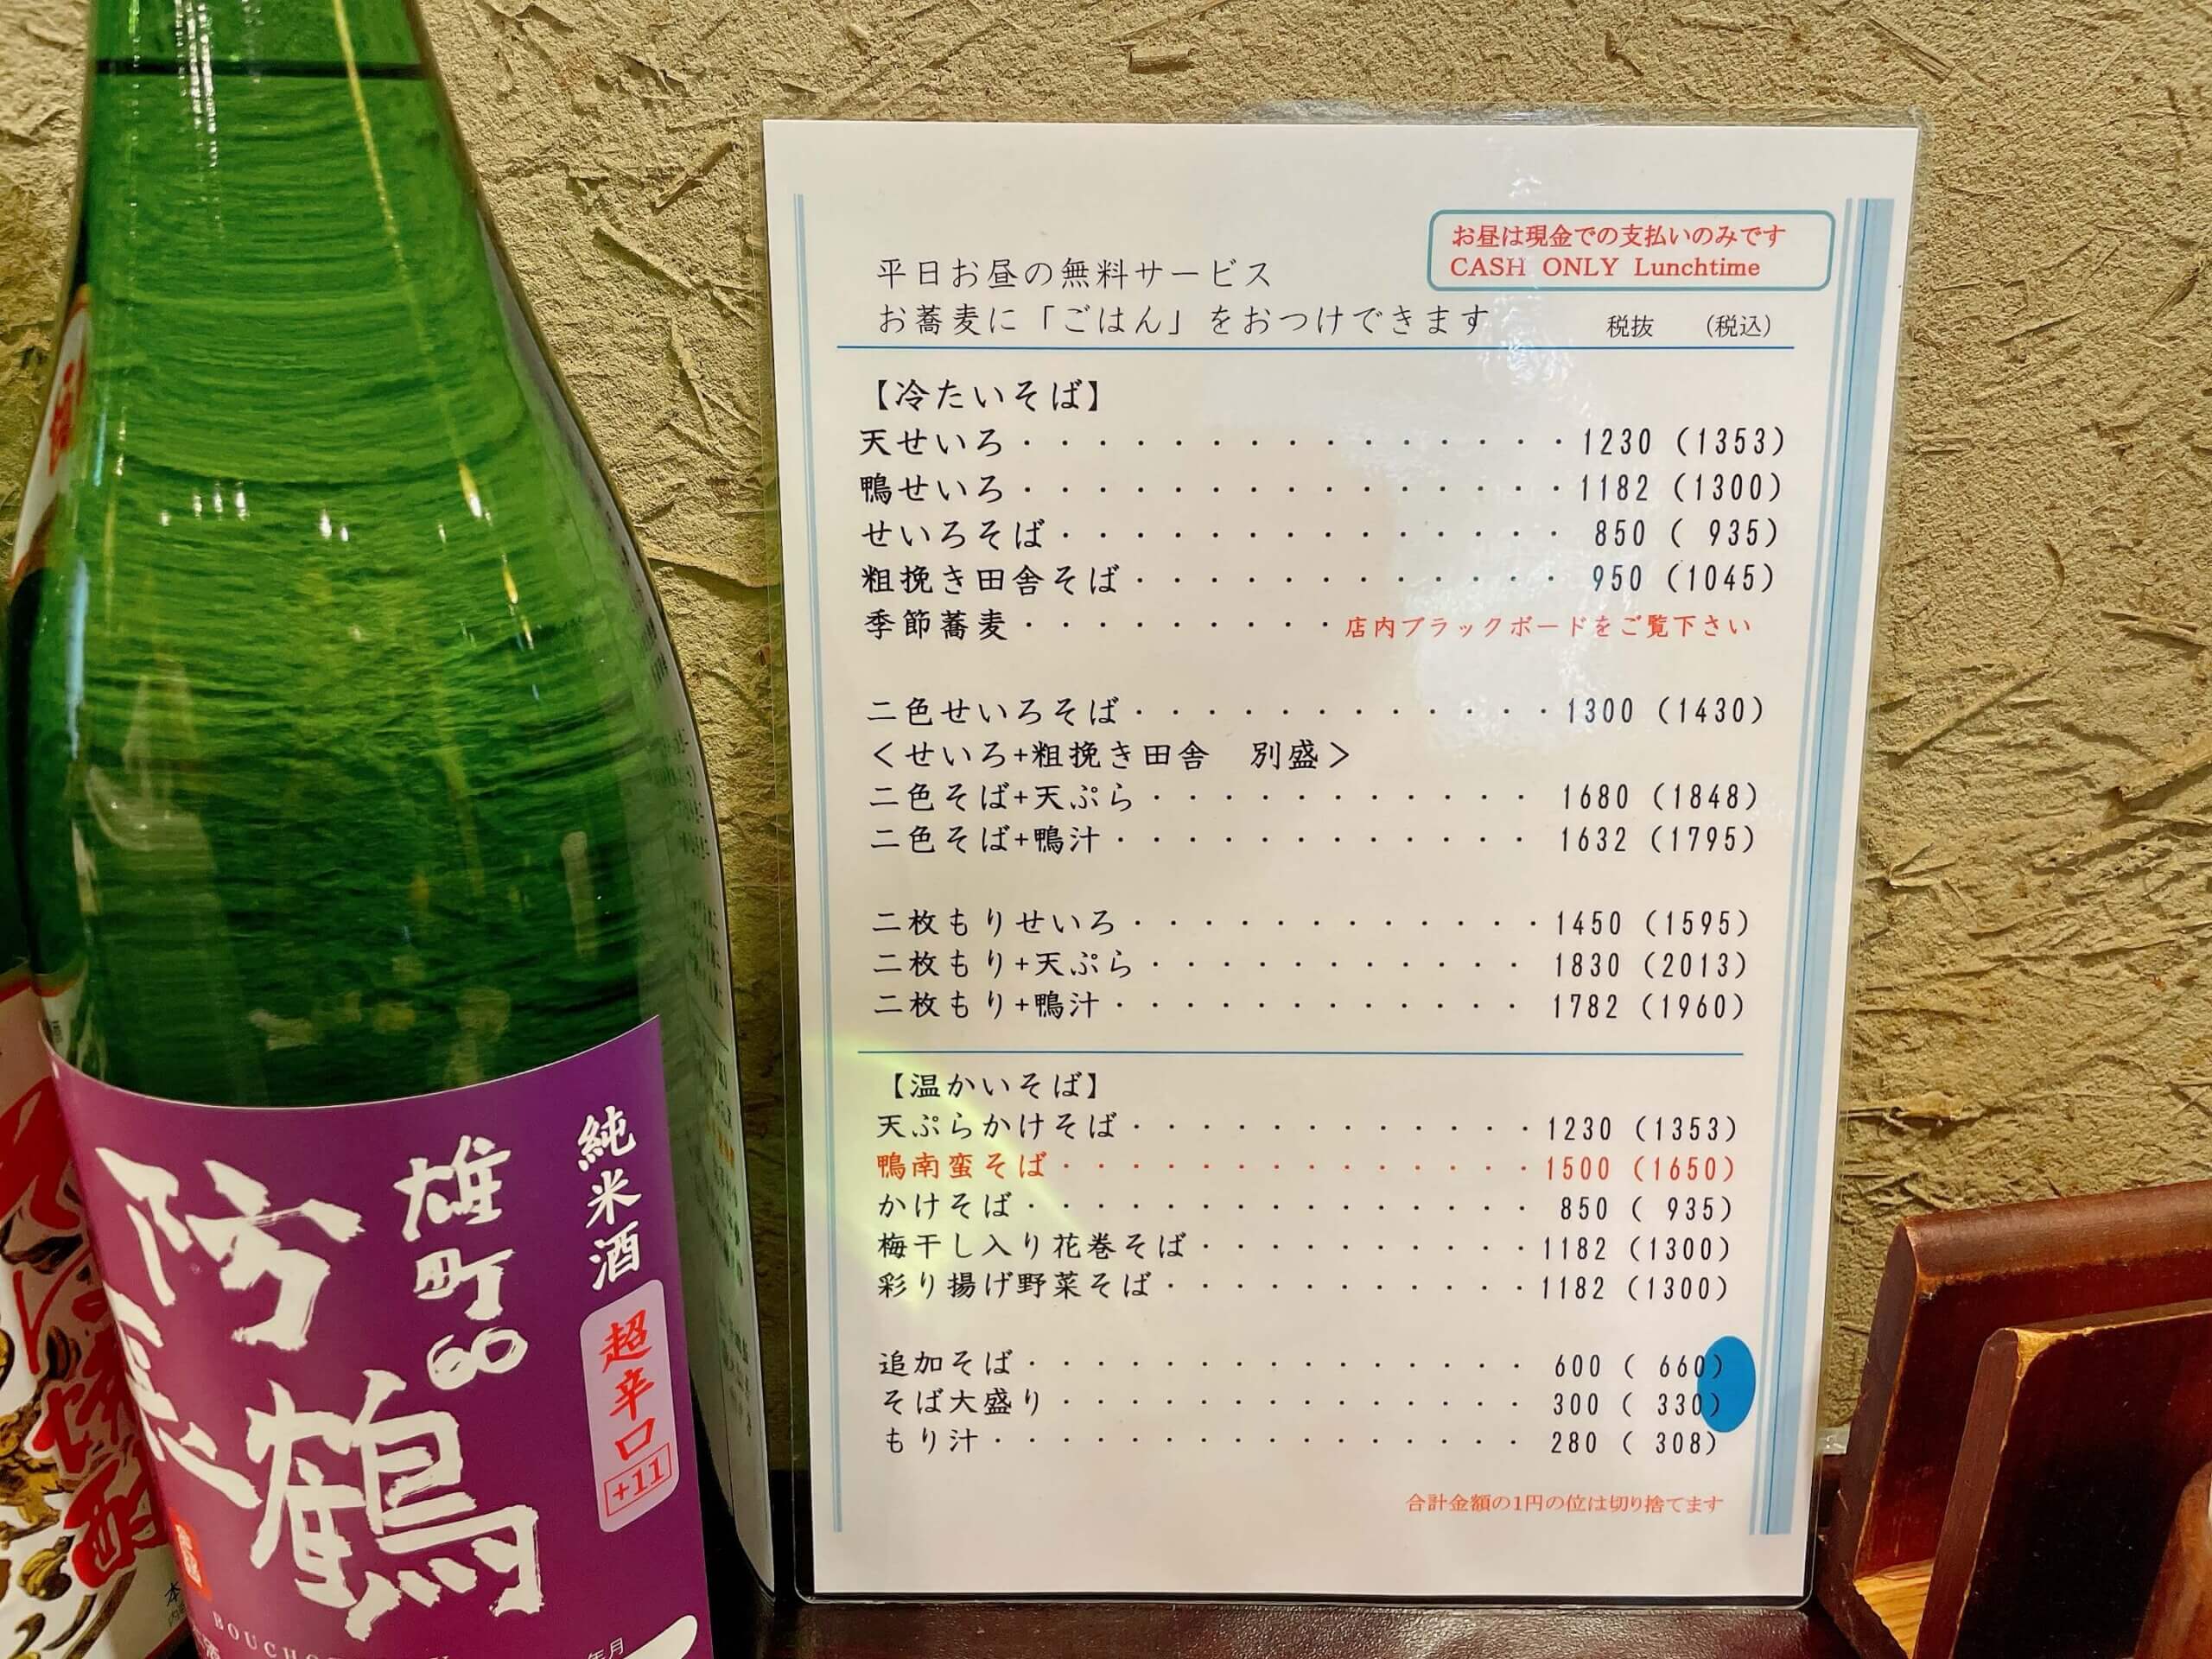 お昼は現金での支払いのみです
CASH ONLY Lunchtime
平日お昼の無料サービス
お蕎麦に「ごはん」をおつけできます 税抜 (税込)
【冷たいそば】
天せいろ・・・・・・・・・・・・・・・1230 (1353)
鴨せいろ・・・・・・・・・・・・・・・1182 (1300)
せいろそば・・・・・・・・・・・・・・ 850 ( 935)
粗挽き田舎そば・・・・・・・・・・・・ 950 (1045)
季節蕎麦・・・・・・・・・店内ブラックボードをご覧下さい
二色せいろそば・・・・・・・・・・・・1300 (1430)
<せいろ+粗挽き田舎 別盛>
二色そば+天ぷら・・・・・・・・・・・ 1680 (1848)
二色そば+鴨汁・・・・・・・・・・・・ 1632 (1795)
二枚もりせいろ・・・・・・・・・・・・1450 (1595)
二枚もり+天ぷら・・・・・・・・・・・ 1830 (2013)
二枚もり+鴨汁・・・・・・・・・・・・ 1782 (1960)
【温かいそば】
天ぷらかけそば・・・・・・・・・・・・1230 (1353)
鴨南蛮そば・・・・・・・・・・・・・・1500 (1650)
かけそば・・・・・・・・・・・・・・・ 850 ( 935)
梅干し入り花巻そば・・・・・・・・・・1182 (1300)
彩り揚げ野菜そば・・・・・・・・・・・1182 (1300)
追加そば・・・・・・・・・・・・・・・ 600 ( 660)
そば大盛り・・・・・・・・・・・・・・ 300 ( 330)
もり汁・・・・・・・・・・・・・・・・ 280 ( 308)
合計金額の1円の位は切り捨てます
純米酒
超辛口
+11
雄町60
防長鶴
BOUCHO
年月